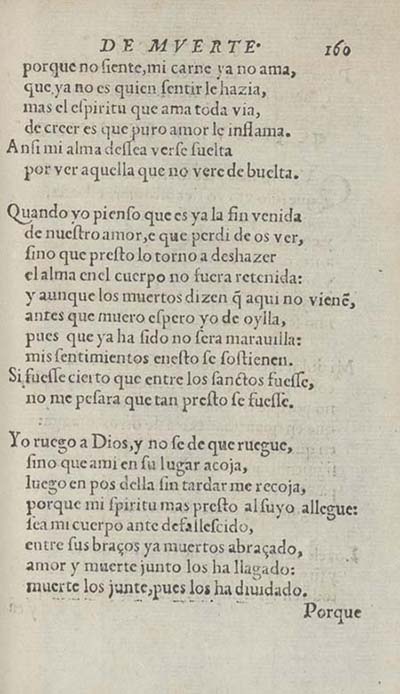 DE MVERTE. 160
porque no ſiente, mi carne ya no ama,
que ya no es quien ſentir le hazia,
mas el eſpiritu que ama toda via,
de creer es que puro amor le inflama.
Anſi mi alma deſſea verſe ſuelta
por ver aquella que no vere de buelta.
Quando yo pienſo que es ya la fin venida
de nueſtro amor, e que perdi de os ver,
ſino que preſto lo torno a deshazer
el alma enel cuerpo no fuera retenida:
y aunque los muertos dizen q̃ aqui no vienẽ,
antes que muero eſpero yo de oylla,
pues que ya ha ſido no ſera marauilla:
mis ſentimientos eneſto ſe ſoſtienen.
Si fueſſe cierto que entre los ſanctos fueſſe,
no me peſara que tan preſto ſe fueſſe.
Yo ruego a Dios, y no ſe de que ruegue,
ſino que ami en ſu lugar acoja,
luego en pos della ſin tardar me recoja,
porque mi ſpiritu mas preſto al ſuyo allegue:
ſea mi cuerpo ante defalleſcido,
entre ſus braços ya muertos abraçado,
amor y muerte junto los ha llagado:
muerte los junte, pues los ha diuidado.
Porque